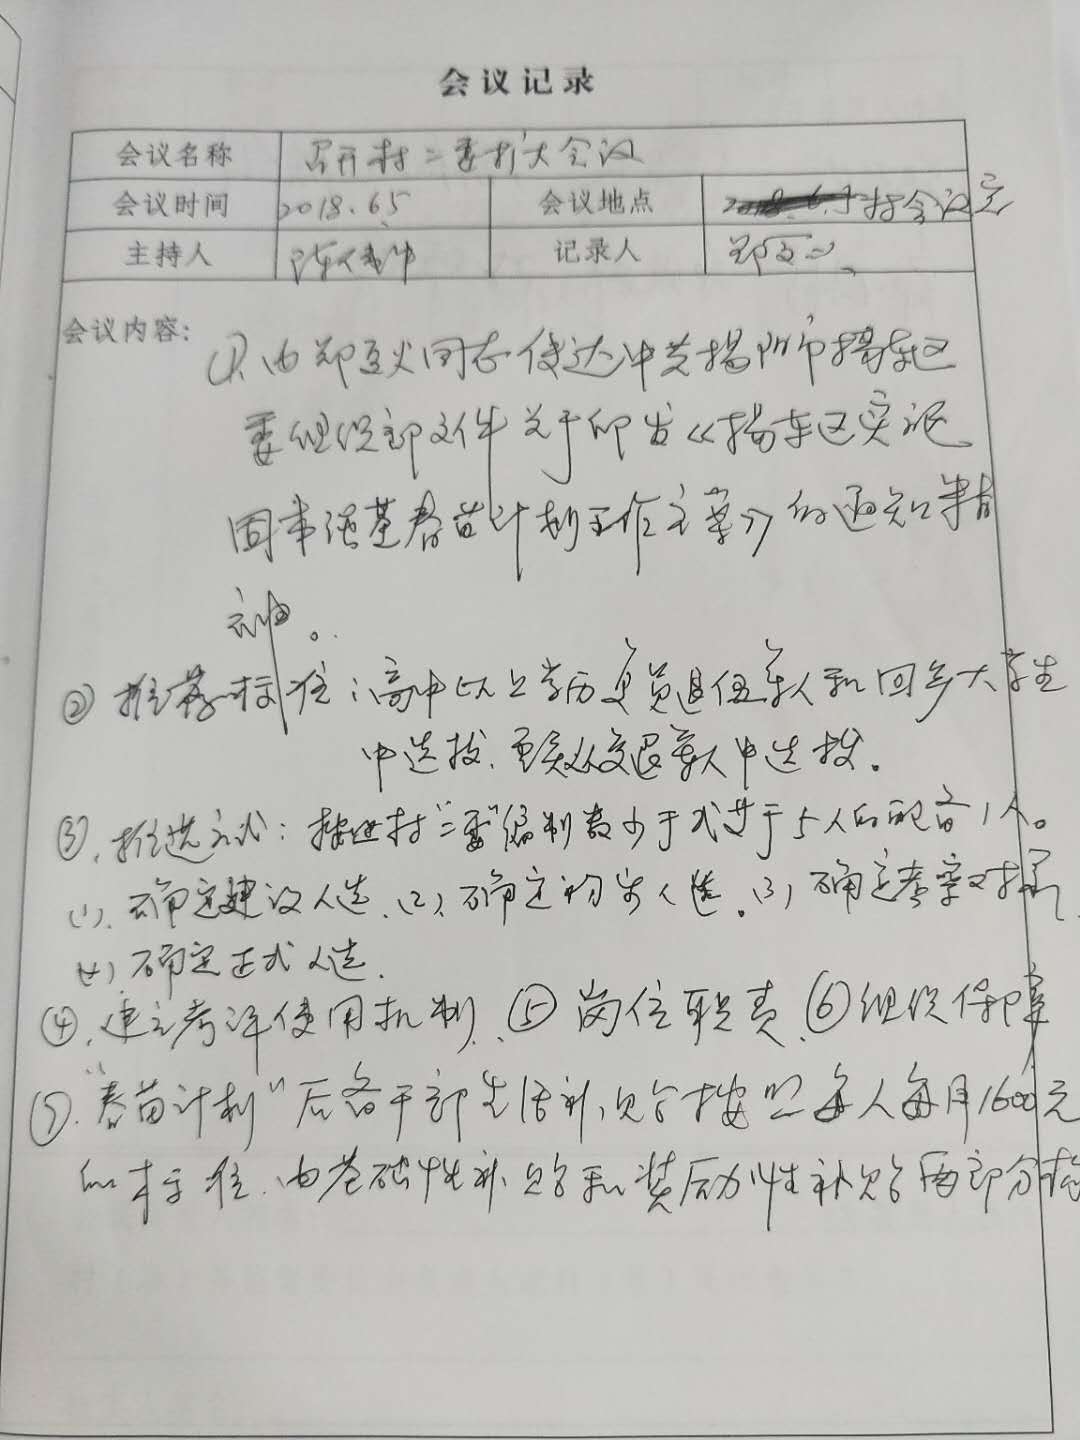 会议记录
会议名称 召开村二委扩大会议
会议时间 2018.6.5 会议地点 村会议室
主持人 陈 记录人 郑
会议内容:
①、由郑 同志传达中共揭阳市揭东区
委组织部文件关于印发《揭东区实施
固本强基春苗计划工作方案》的通知精
神。
② 推荐标准:高中以上学历党员退伍军人和回乡大学生
中选拔、 退军人中选拔。
③、推选方式:按照村"二委"编制数少于或等于5人的配备1人。
(1)、确定建议人选、(2)、确定初步人选。(3)、确定考察对象、
(4)、确定正式人选.
④、建立考评使用机制、⑤岗位职责、⑥组织保障
⑦、"春苗计划"后备干部生活补贴按照每人每月1600元
的标准、由基础性补贴和奖励性补贴两部分构